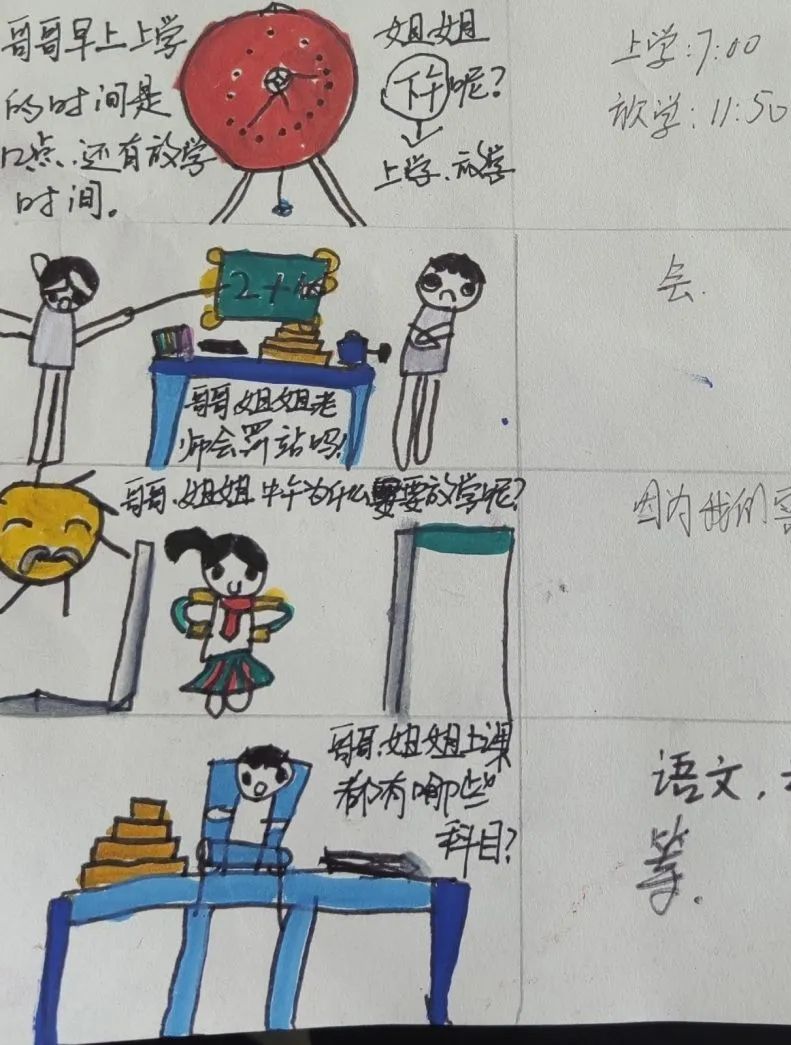 哥哥早上上学
的时间是
几点.还有放学
时间。
姐姐
下午呢?
上学.放学
上学:7:00
放学:11:50
2+
哥哥.姐姐老
师会罚站吗!
会.
哥哥.姐姐中午为什么要放学呢?
因为我们
哥哥.姐姐上课
都有哪些
科目?
语文,
等.